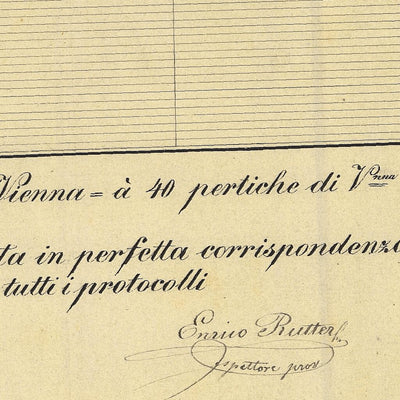 Vienna = à 40 pertiche di V<sup>nna</sup>
ta in perfetta corrispondenza
tutti i protocolli
Enrico Rutter
ispettore prov